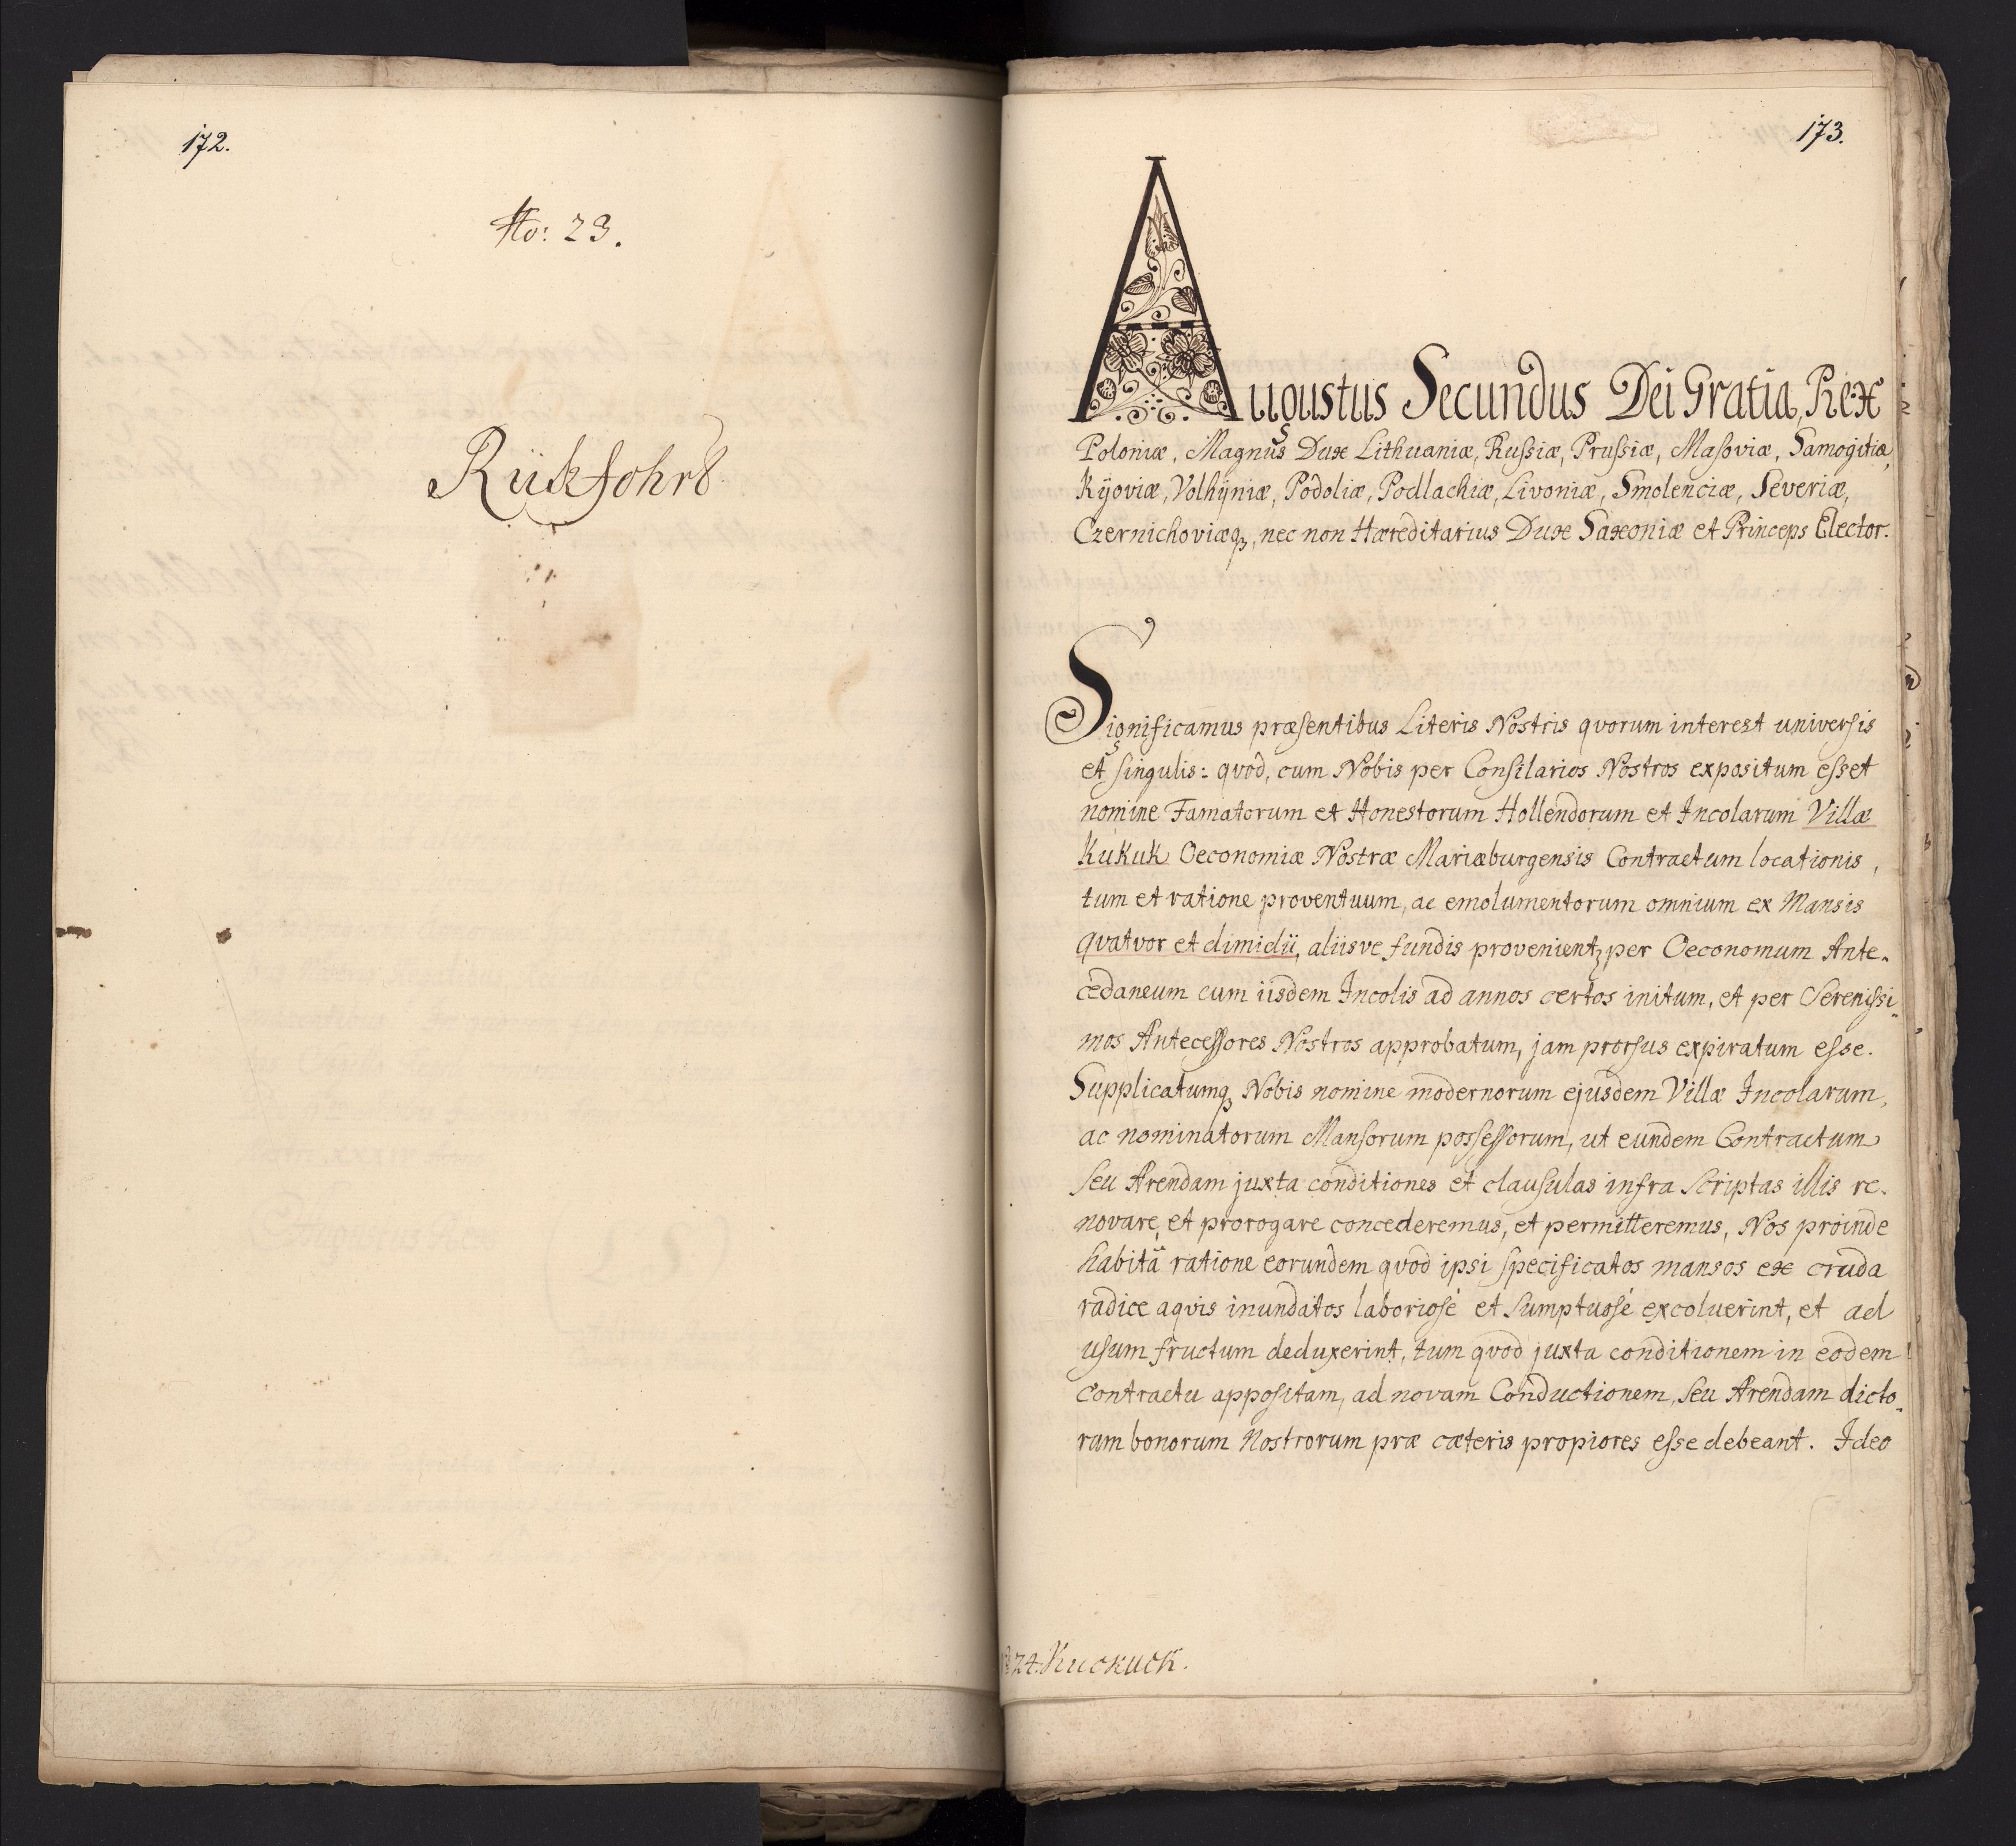 172.
No: 23.
Rükfohrt
173.
Augustus Secundus Dei Gratia, Rex
Poloniæ, Magnus Dux Lithuaniæ, Russiæ, Prussiæ, Masoviæ, Samogitiæ,
Kijoviæ, Volhijniæ, Podoliæ, Podlachiæ, Livoniæ, Smolenciæ, Severiæ,
Czernichoviæq, nec non Hæreditarius Dux Saxoniæ et Princeps Elector.
Significamus præsentibus Literis Nostris qvorum interest universis
et singulis: qvod, cum Nobis per Consilarios Nostros expositum esset
nomine Famatorum et Honestorum Hollendorum et Incolarum Villæ
Kukuk Oeconomiæ Nostræ Mariæburgensis Contractum locationis,
tum et ratione proventuum, ac emolumentorum omnium ex Mansis
qvatvor et dimidii, aliisve fundis provenientz per Oeconomum Ante-
cedaneum cum iisdem Incolis ad annos certos initum, et per Serenissi-
mos Antecessores Nostros approbatum, jam prorsus expiratum esse.
Supplicatumq Nobis nomine modernorum ejusdem Villæ Incolarum,
ac nominatorum Mansorum possessorum, ut eundem Contractum
seu Arendam juxta conditiones et clausulas infra scriptas illis re-
novare, et prorogare concederemus, et permitteremus, Nos proinde
habitâ ratione eorundem qvod ipsi specificatos mansos ex cruda
radice aqvis inundatos laboriosé et sumptuosé excoluerint, et ad
usum fructum deduxerint, tum qvod juxta conditionem in eodem
contractu appositam, ad novam Conductionem, seu Arendam dicto-
rum bonorum Nostrorum præ cæteris propiores esse debeant. Ideo
24. Kuckuck.